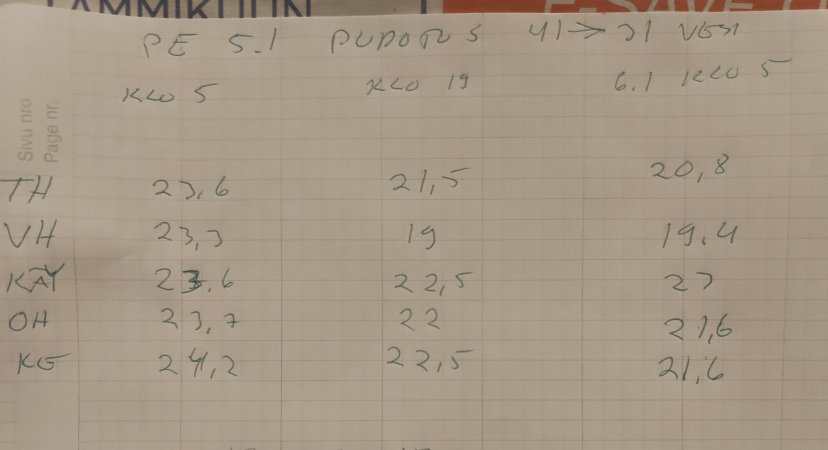 TAMMIKUUN E-SAVE
PE 5.1 PUDOTUS 41→31 VESI
KLO 5 KLO 19 6.1 KLO 5
Sivu nro
Page nr.
TH 23,6 21,5 20,8
VH 23,3 19 19.4
KÄY 23.6 22,5 23
OH 23,7 22 21,6
KE 24,2 22,5 21,6